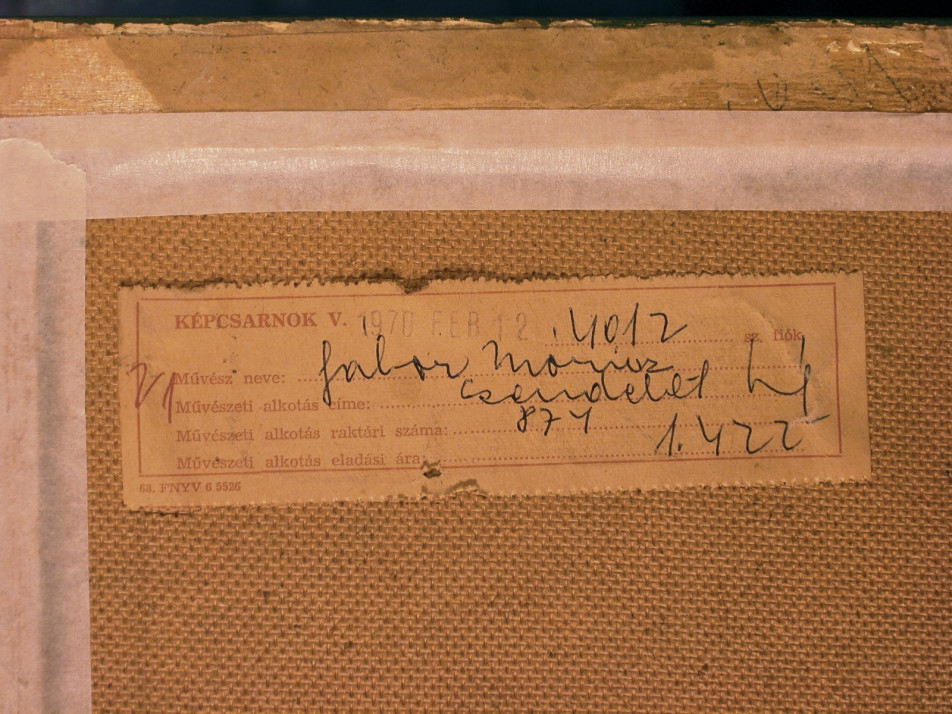 KÉPCSARNOK V. 1970 FEB 12 4012 sz. fiók
Művész neve: Gabor Moricz
Művészeti alkotás címe: Csendélet
Művészeti alkotás raktári száma: 871
Művészeti alkotás eladási ára: 1.422
68. FNYV 6 5526